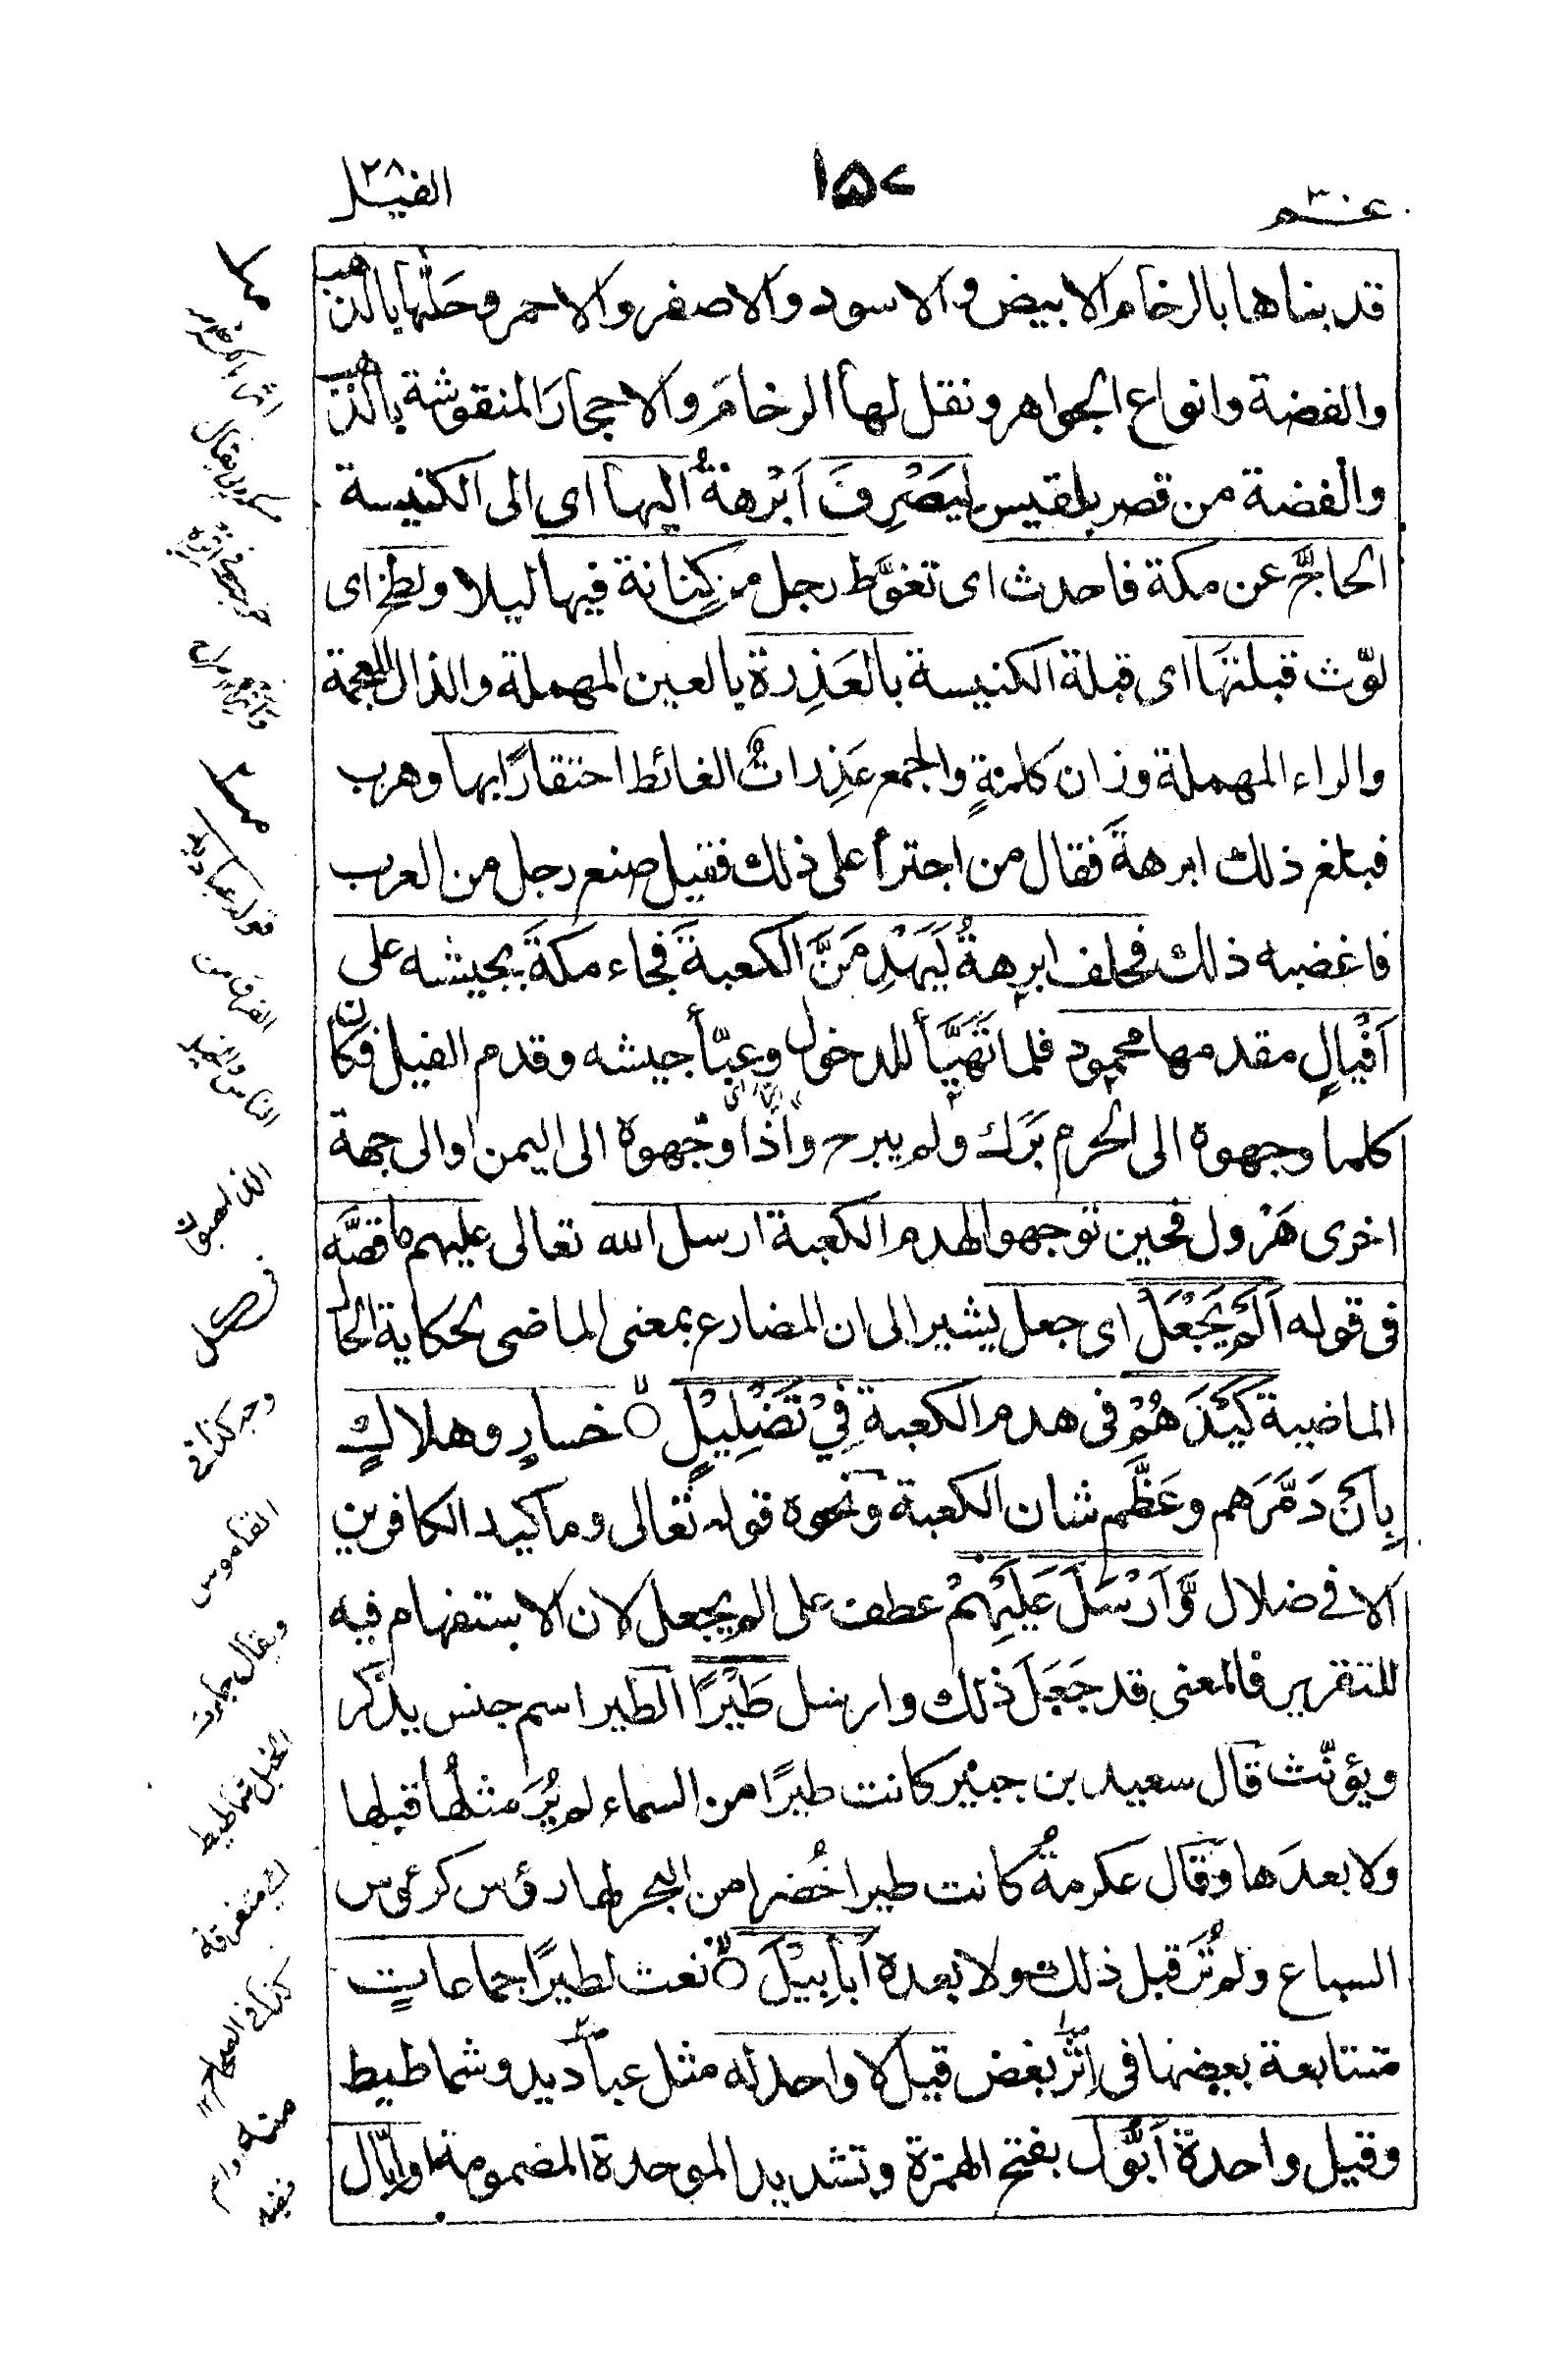 عـم ٣٠
١٥٧
الفيل ٢٨
قد بناها بالرخام الابيض والاسود والاصفر والاحمر وحلّها بالذهب
والفضة وانواع الجواهر ونقل لها الرخامَ والاحجارَ المنقوشة بالذهب
والفضة من قصر بلقيس ليَصْرِفَ اَبْرهةُ اليها اى الى الكنيسة
الحاجَّ عن مكة فاحدث اى تغوَّط رجل من كِنانة فيها ليلا ولطخ اى
لوّث قبلتَها اى قبلة الكنيسة بالعَذِرة بالعين المهملة والذال المعجمة
والراء المهملة وزان كلمةٍ والجمع عَذِراتٌ الغائط احتقارًا بها وهرب
فبلغ ذلك ابرهةَ فقال من اجترأ على ذلك فقيل صنع رجل من العرب
فاغضبه ذلك فحلف ابرهةُ لَيَهْدِمَنَّ الكعبةَ فجاء مكةَ بجيشه على
اَفْيالٍ مقدمها محمود فلما تَهَيَّأ للدخول وعبّأ جيشه وقدم الفيل فكان
كلما وجهوه الى الحرم بَرَك ولم يبرح واذا وجّهوه الى اليمن او الى جهة
اخرى هَرْول فحين توجهوا لهدم الكعبة ارسل الله تعالى عليهم ما قصَّه
فى قوله اَلَمْ يَجْعَلْ اى جعل يشير الى ان المضارع بمعنى الماضى لحكاية الحال
الماضية كَيْدَهُمْ فى هدم الكعبة فِيْ تَضْلِيْلٍ ○ خسارٍ وهلاكٍ
بِأَنْ دَمَّرَهم وعَظَّم شان الكعبة ونحوه قوله تعالى وما كيد الكافرين
الا فى ضلال وَّاَرْسَلَ عَلَيْهِمْ عطف على الم يجعل لان الاستفهام فيه
للتقرير فالمعنى قد جَعَلَ ذلك وارسل طَيْرًا الطير اسم جنس يذكر
ويؤنّث قال سعيد بن جبير كانت طيرًا من السماء لم يُرَ مثلُها قبلها
ولا بعدَها وقال عكرمةُ كانت طيرا خُضرا من البحر لها رؤس كرءوس
السباع ولم تُرَ قبل ذلك ولا بعده اَبَابِيْلَ ○ نعت لطيرًا جماعاتٍ
متتابعة بعضها فى اِثر بعض قيل لا واحد له مثل عباديد وشماطيط
وقيل واحدة اَبُّول بفتح الهمزة وتشديد الموحدة المضمومة او اِبّال
قوله عباديد
الفرق من
الناس
وجه كذا فى
القاموس
ويقال جاءت
الخيل شماطيط
اى متفرقة
كذا فى الصحاح ١٢
منه دام
فيضه